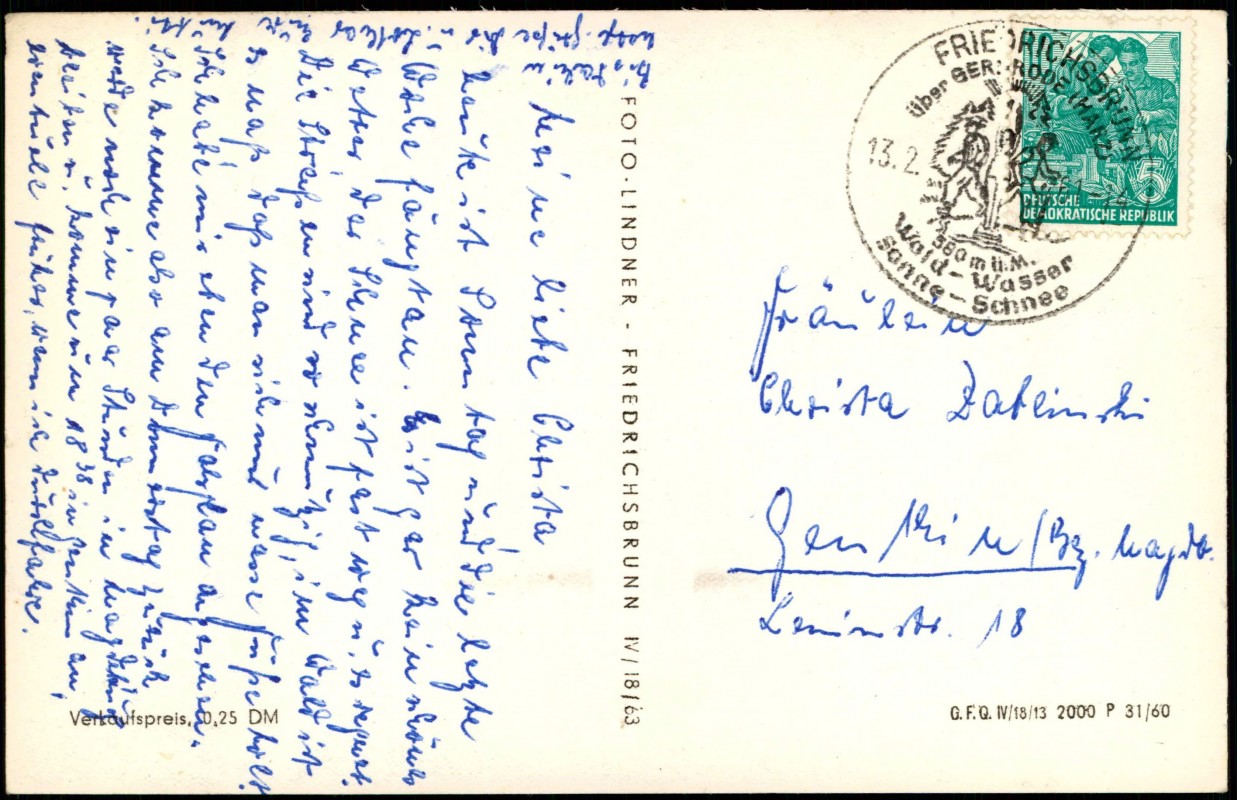 Meine liebe Christa
heute ist Sonntag und die letzte
Woche fängt an. Es ist gar kein schönes
Wetter, der Schnee ist fast weg u. es regnet.
Die Straßen sind so schmutzig, im Wald ist
es naß, daß man sich nur nasse Füße holt.
Ich habe mir eben den Fahrplan angesehen.
Ich komme also am Donnerstag zurück
werde noch ein paar Stunden in Magdeburg
bleiben u. komme um 18³⁸ in Genthin an,
eventuell früher, wenn ich durchfahre.
Bis dahin
herzl. Grüße Dir u. Lothar
FOTO-LINDNER - FRIEDRICHSBRUNN IV/18/63
Verkaufspreis 0,25 DM
FRIEDRICHSBRUNN
über GERNRODE (HARZ)
13.2.61-14
580 m ü.M.
Wald-Wasser
Sonne-Schnee
5
DEUTSCHE
DEMOKRATISCHE REPUBLIK
Fräulein
Christa Dablinski
Genthin/Bz. Magdb.
Leninstr. 18
G.F.Q. IV/18/13 2000 P 31/60